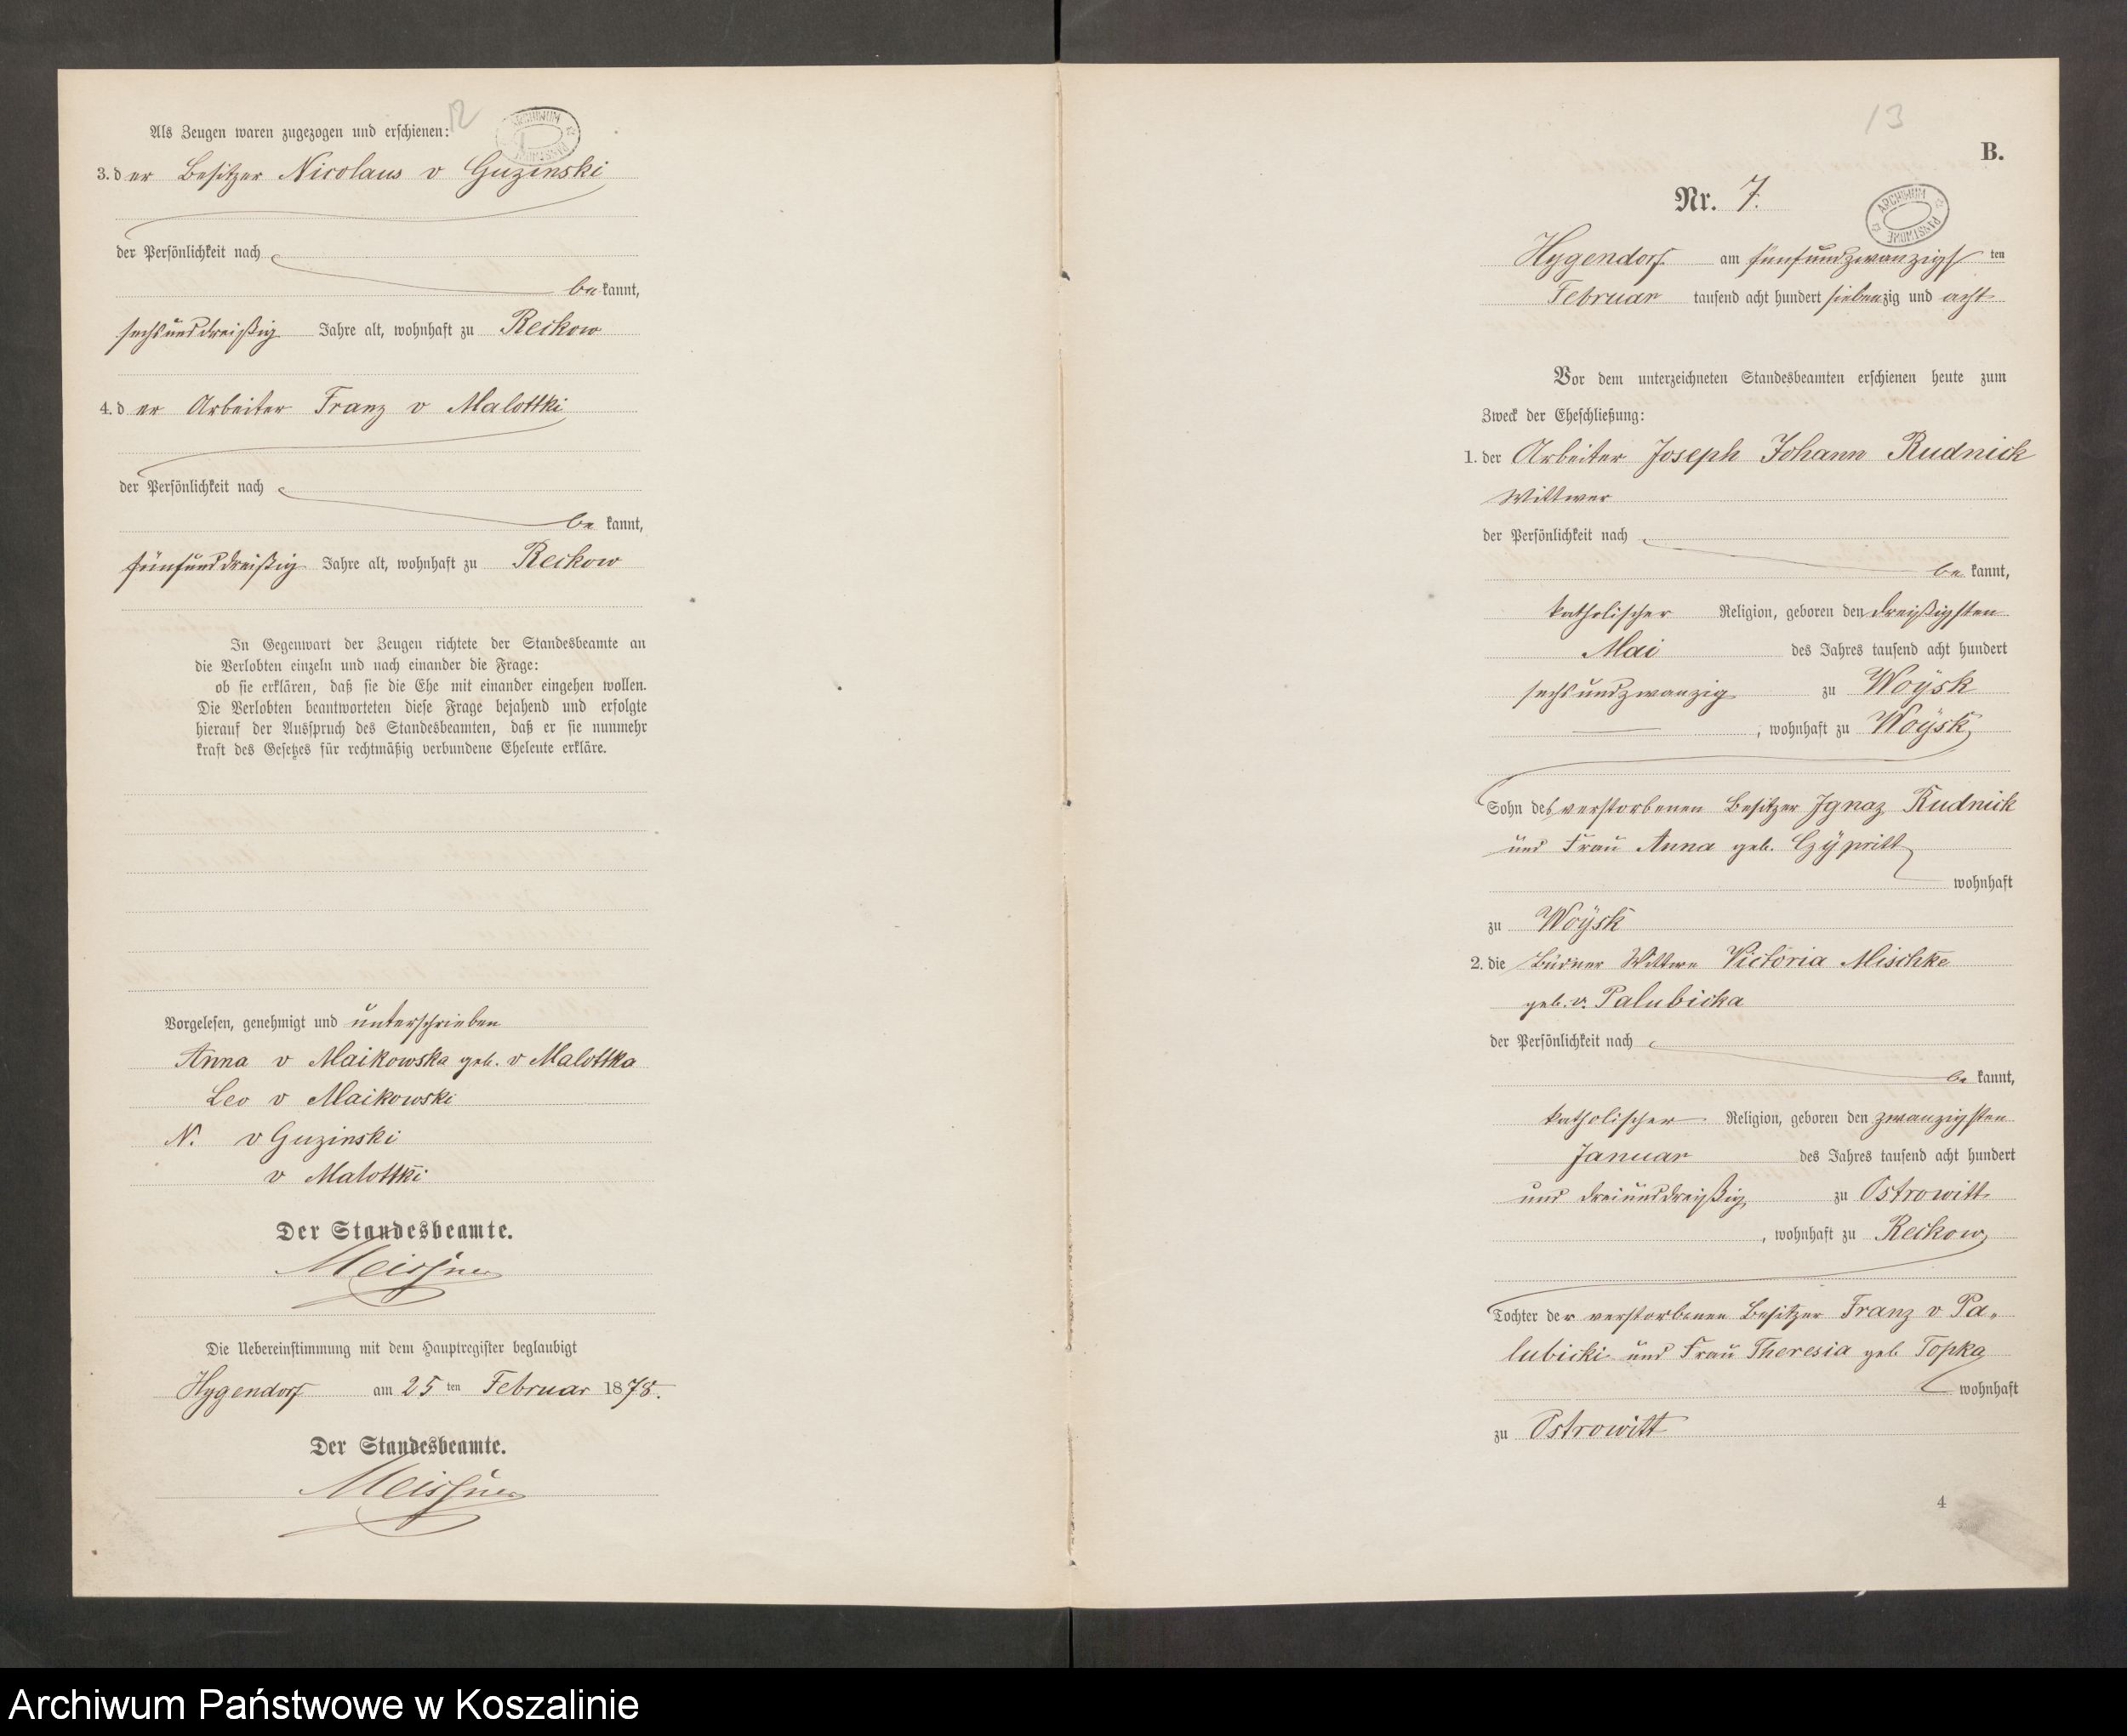 12
Als Zeugen waren zugezogen und erschienen:
ARCHIWUM PAŃSTWOWE
3. der Besitzer Nicolaus v Guzinski
der Persönlichkeit nach
be kannt,
sechsunddreißig Jahre alt, wohnhaft zu Reckow
4. der Arbeiter Franz v Malottki
der Persönlichkeit nach
be kannt,
fünfunddreißig Jahre alt, wohnhaft zu Reckow
In Gegenwart der Zeugen richtete der Standesbeamte an
die Verlobten einzeln und nach einander die Frage:
ob sie erklären, daß sie die Ehe mit einander eingehen wollen.
Die Verlobten beantworteten diese Frage bejahend und erfolgte
hierauf der Ausspruch des Standesbeamten, daß er sie nunmehr
kraft des Gesetzes für rechtmäßig verbundene Eheleute erkläre.
Vorgelesen, genehmigt und unterschrieben
Anna v Maikowska geb. v Malottka
Leo v Maikowski
N. v Guzinski
v Malottki
Der Standesbeamte.
Meissner
Die Uebereinstimmung mit dem Hauptregister beglaubigt
Hygendorf am 25 ten Februar 1878.
Der Standesbeamte.
Meissner
13
B.
Nr. 7.
ARCHIWUM PAŃSTWOWE
Hygendorf am fünfundzwanzigs ten
Februar tausend acht hundert siebenzig und acht
Vor dem unterzeichneten Standesbeamten erschienen heute zum
Zweck der Eheschließung:
1. der Arbeiter Joseph Johann Rudnick
Wittwer
der Persönlichkeit nach
be kannt,
katholischer Religion, geboren den dreißigsten
Mai des Jahres tausend acht hundert
sechsundzwanzig zu Woÿsk
, wohnhaft zu Woÿsk,
Sohn des verstorbenen Besitzer Ignaz Rudnick
und Frau Anna geb.
wohnhaft
zu Woÿsk
2. die Büdner Wittwe Victoria Mischke
geb. v. Palubicka
der Persönlichkeit nach
be kannt,
katholischer Religion, geboren den zwanzigsten
Januar des Jahres tausend acht hundert
und dreiunddreißig zu Ostrowitt
, wohnhaft zu Reckow,
Tochter der verstorbenen Besitzer Franz v Pa-
lubicki und Frau Theresia geb Topka
wohnhaft
zu Ostrowitt
4
Archiwum Państwowe w Koszalinie